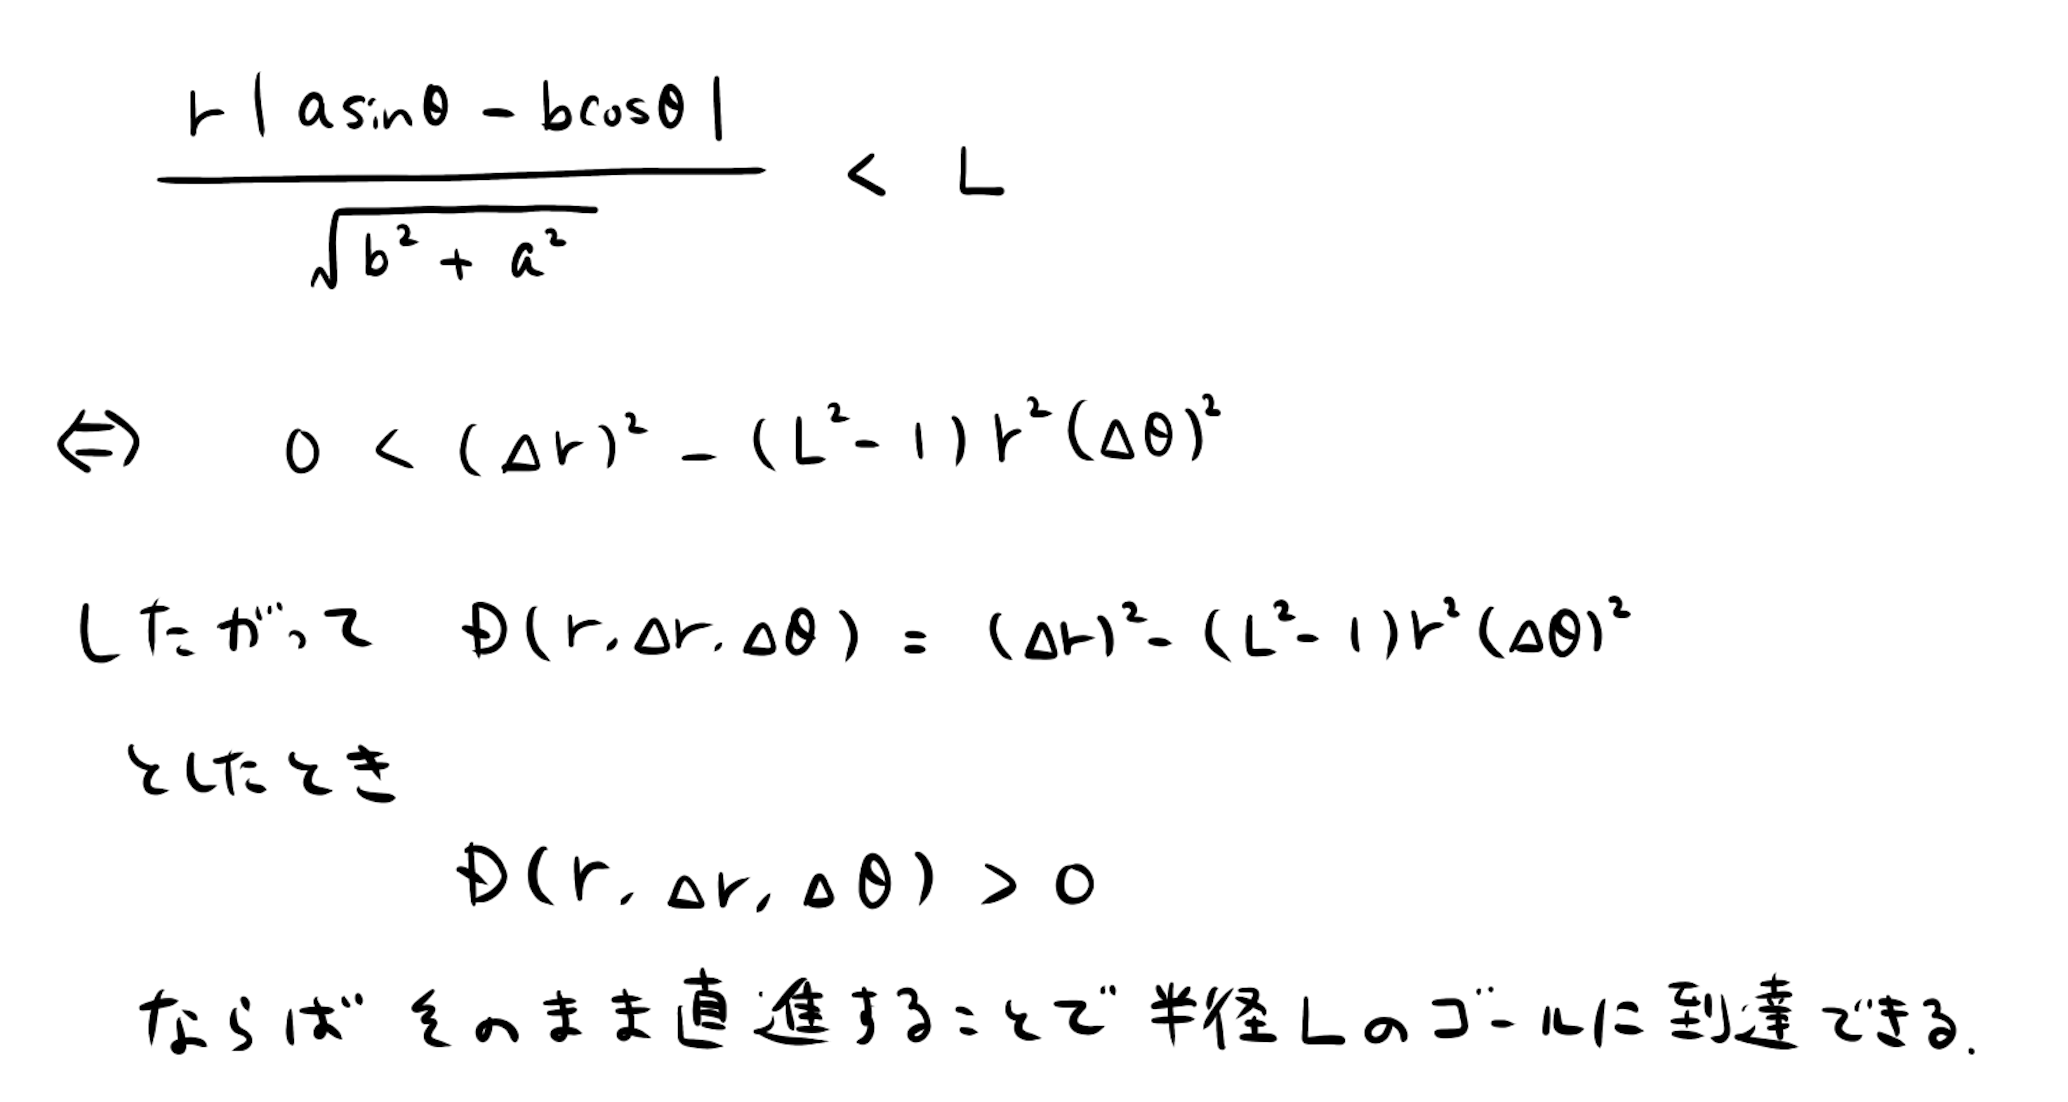 r|a sinθ - b cosθ| / √(b² + a²) < L
⇔ 0 < (Δr)² - (L² - 1)r²(Δθ)²
したがって D(r, Δr, Δθ) = (Δr)² - (L² - 1)r²(Δθ)²
としたとき
D(r, Δr, Δθ) > 0
ならばそのまま直進することで半径Lのゴールに到達できる.